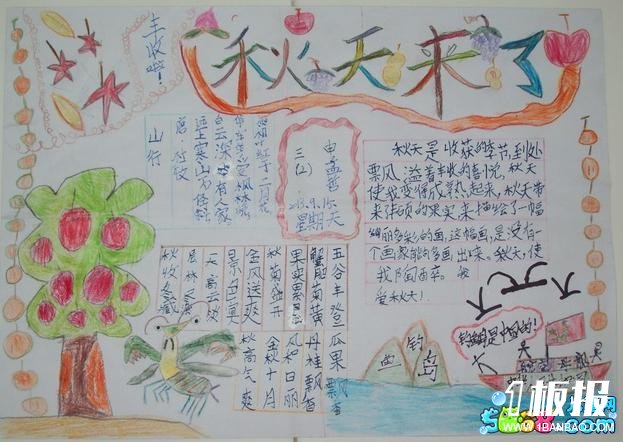 丰收啦！
秋天来了
山行
唐·杜牧
远上寒山石径斜
白云深处有人家
停车坐爱枫林晚
霜叶红于二月花
三
(2)
申孟哲
星期天
秋天是收获的季节,到处
飘风溢着丰收的喜悦,秋天
使我变得成熟起来,秋天带
来佳硕的果实,来描绘了一幅
绚丽多彩的画,这幅画,是没有
个画家能的多画,出来。秋天,使
我
爱秋天!
五谷丰登 瓜果飘香
蟹肥菊黄 丹桂飘香
果实累累 风和日丽
秋菊盛开 金秋十月
金风送爽 秋高气爽
天高云淡
秋收冬藏
钓
岛
钓鱼岛是中国的!
1板报网
WWW.1BANBAO.COM